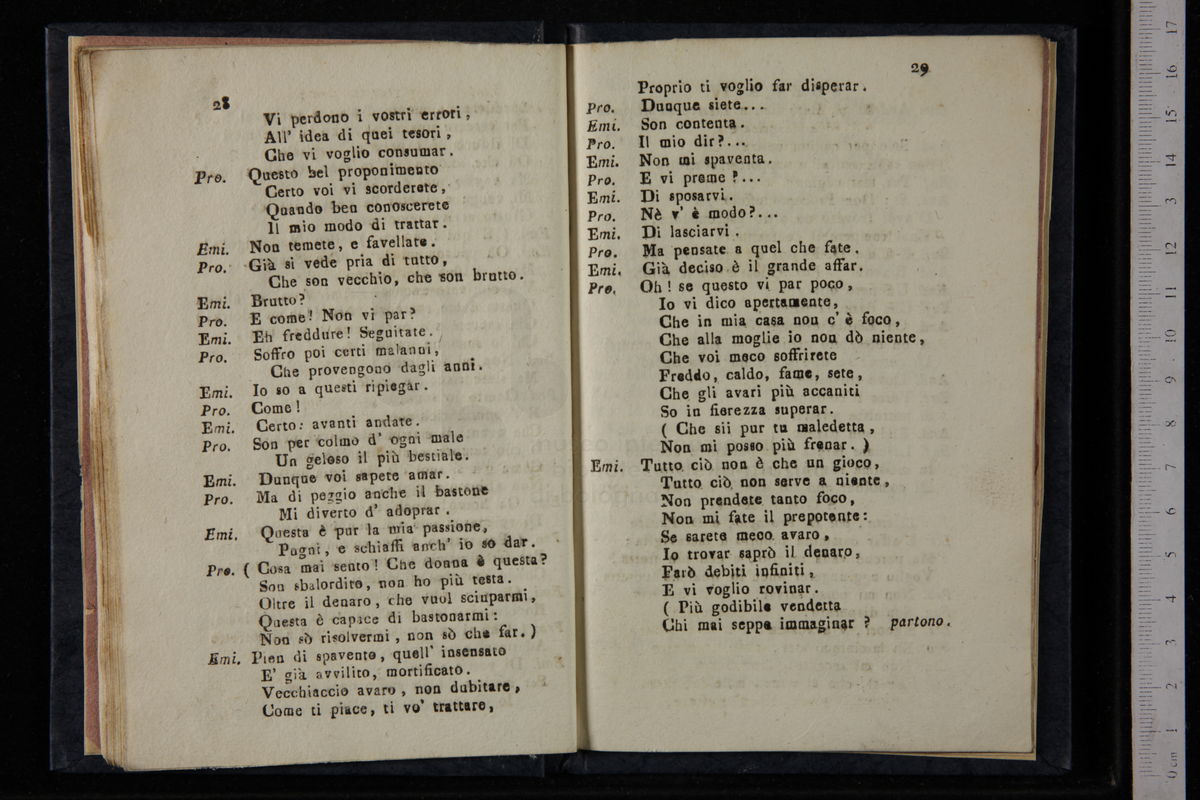 28
Vi perdono i vostri errori,
All' idea di quei tesori,
Che vi voglio consumar.
Pro. Questo bel proponimento
Certo voi vi scorderete,
Quando ben conoscerete
Il mio modo di trattar.
Emi. Non temete, e favellate.
Pro. Già si vede pria di tutto,
Che son vecchio, che son brutto.
Emi. Brutto?
Pro. E come! Non vi par?
Emi. Eh freddure! Seguitate.
Pro. Soffro poi certi malanni,
Che provengono dagli anni.
Emi. Io so a questi ripiegar.
Pro. Come!
Emi. Certo: avanti andate.
Pro. Son per colmo d' ogni male
Un geloso il più bestiale.
Emi. Dunque voi sapete amar.
Pro. Ma di peggio anche il bastone
Mi diverto d' adoprar.
Emi. Questa è pur la mia passione,
Pugni, e schiaffi anch' io so dar.
Pro. ( Cosa mai sento! Che donna è questa?
Son sbalordito, non ho più testa.
Oltre il denaro, che vuol sciuparmi,
Questa è capace di bastonarmi:
Non sò risolvermi, non sò che far. )
Emi. Pien di spavento, quell' insensato
E' già avvilito, mortificato.
Vecchiaccio avaro, non dubitare,
Come ti piace, ti vo' trattare,
29
Proprio ti voglio far disperar.
Pro. Dunque siete...
Emi. Son contenta.
Pro. Il mio dir?...
Emi. Non mi spaventa.
Pro. E vi preme?...
Emi. Di sposarvi.
Pro. Nè v' è modo?...
Emi. Di lasciarvi.
Pro. Ma pensate a quel che fate.
Emi. Già deciso è il grande affar.
Pro. Oh! se questo vi par poco,
Io vi dico apertamente,
Che in mia casa non c' è foco,
Che alla moglie io non dò niente,
Che voi meco soffrirete
Freddo, caldo, fame, sete,
Che gli avari più accaniti
So in fierezza superar.
( Che sii pur tu maledetta,
Non mi posso più frenar. )
Emi. Tutto ciò non è che un gioco,
Tutto ciò non serve a niente,
Non prendete tanto foco,
Non mi fate il prepotente:
Se sarete meco avaro,
Io trovar saprò il denaro,
Farò debiti infiniti,
E vi voglio rovinar.
( Più godibile vendetta
Chi mai seppe immaginar ? partono.